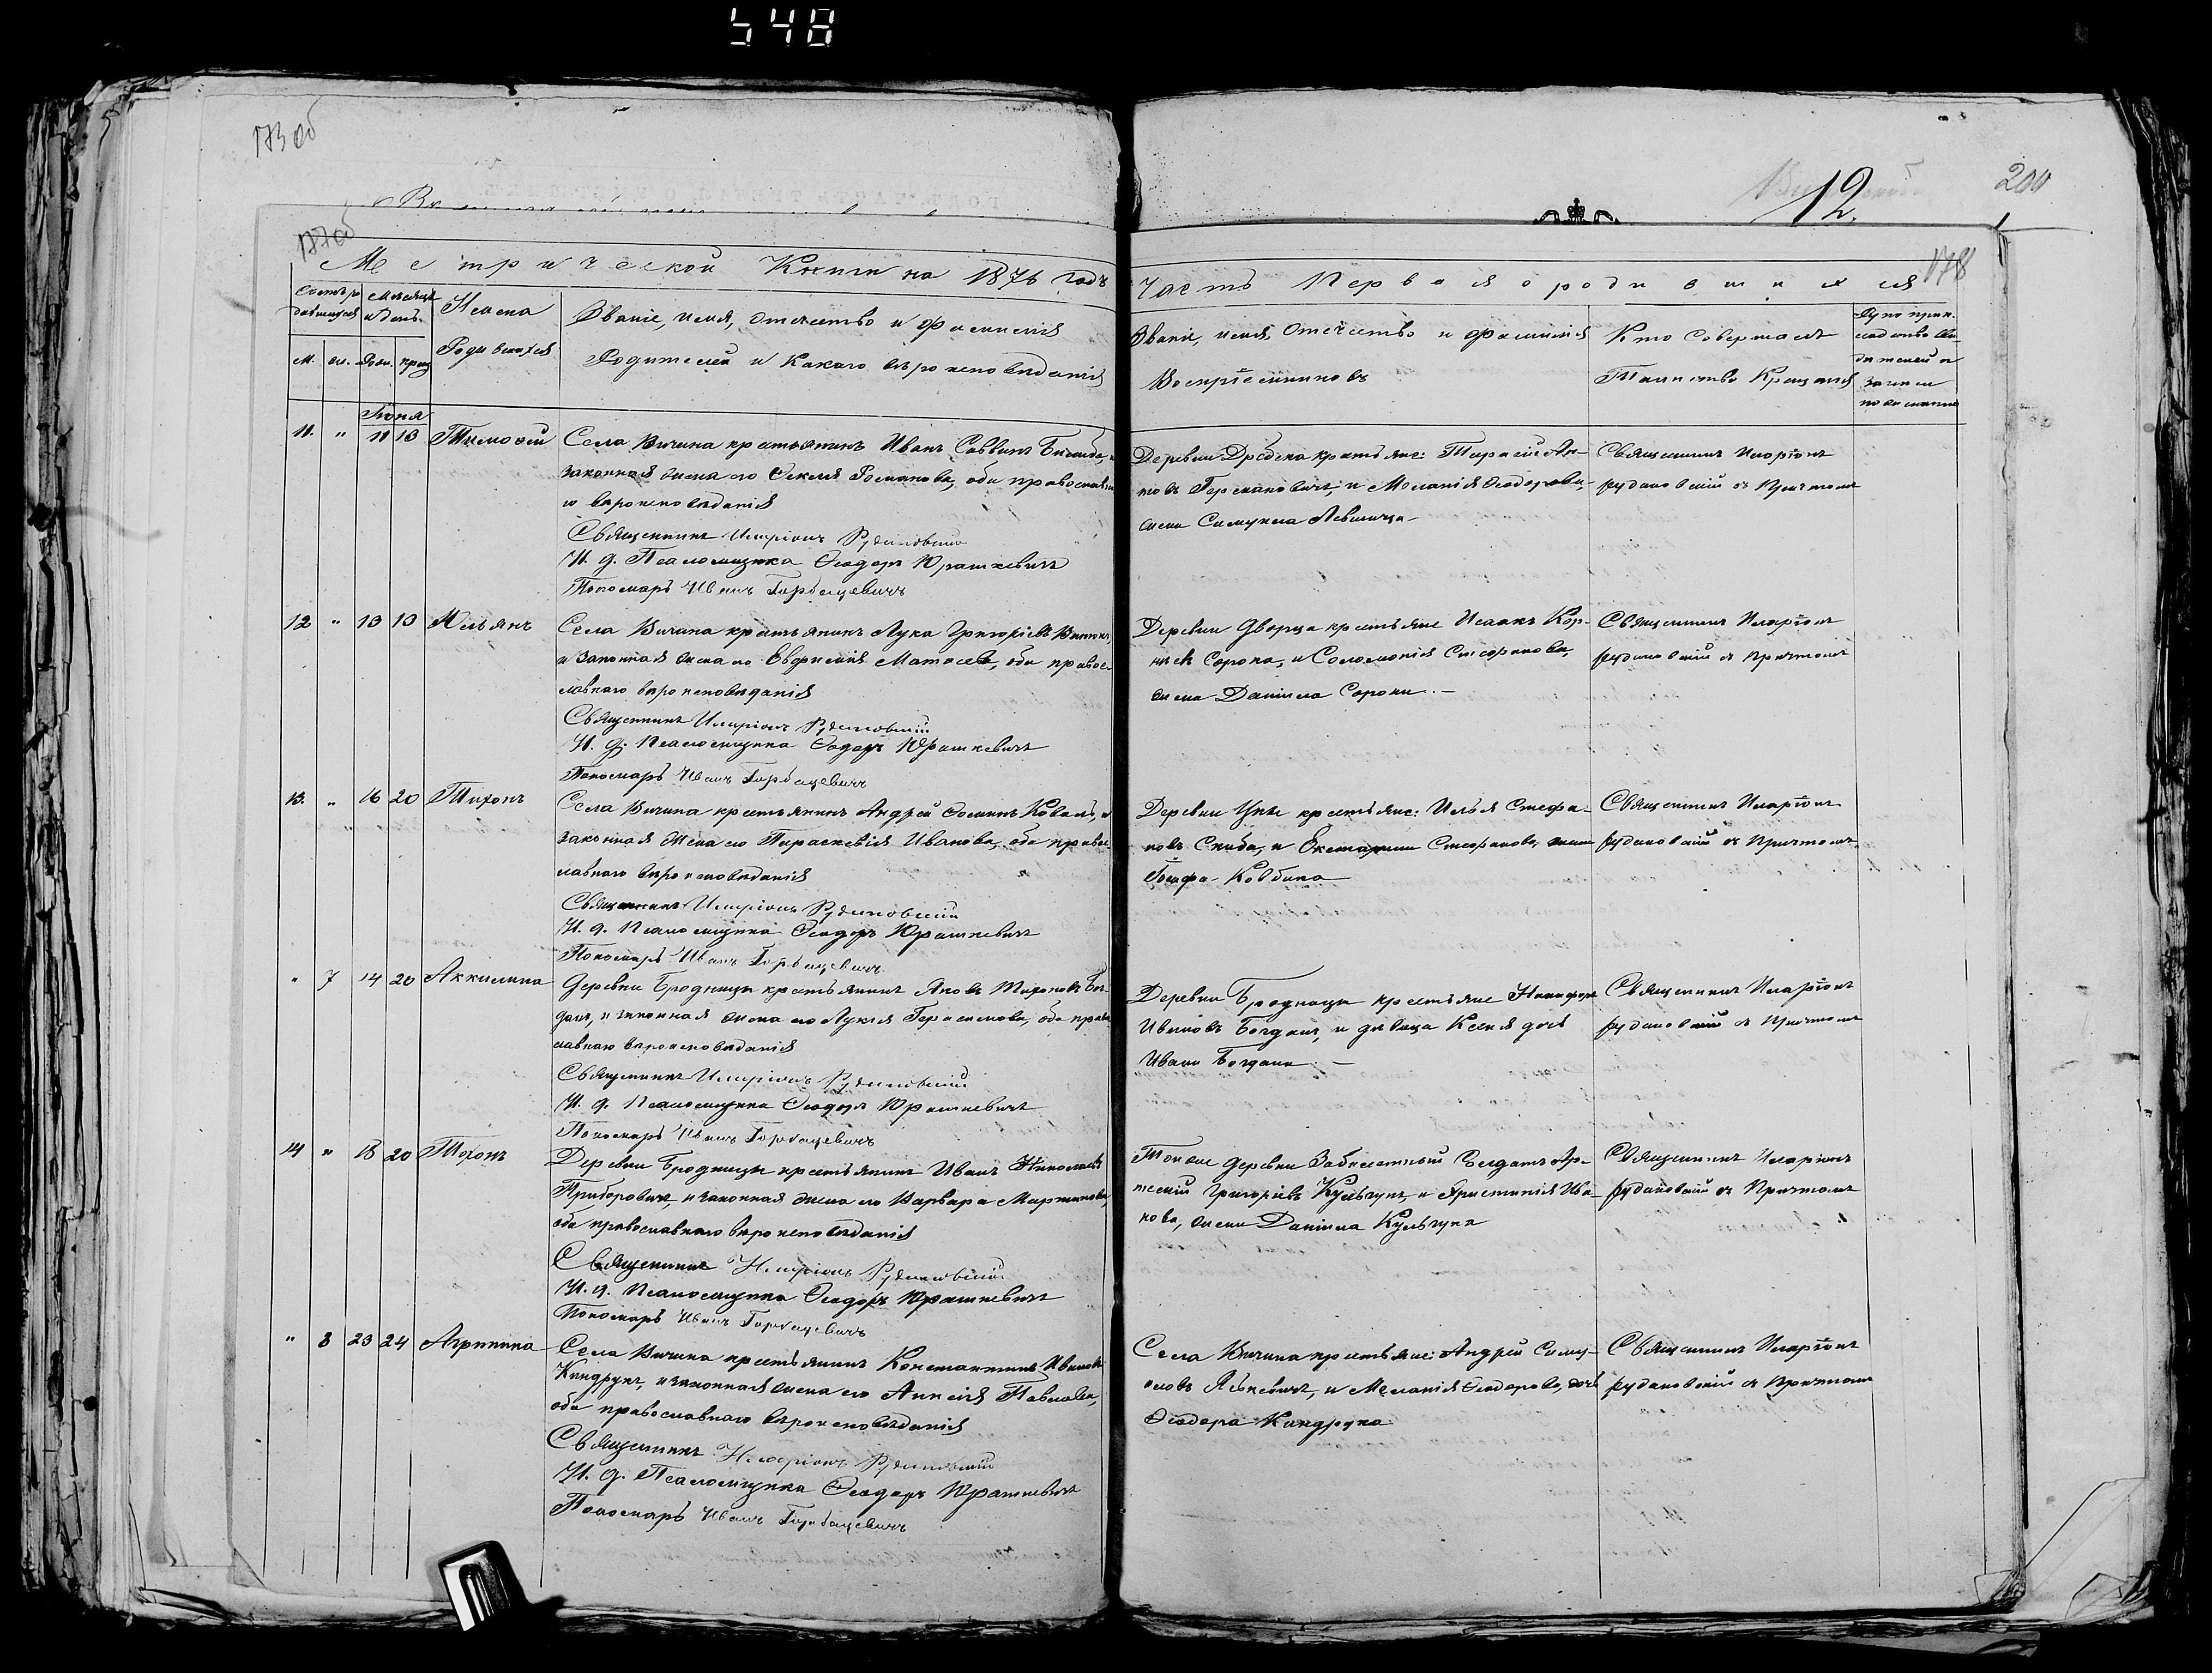 548
173 об
12.
200
177 об
178
Метрической Книги на 1876 годъ
Часть Первая о родившихся
Счетъ родившихся
Мѣсяцъ и день.
Имена
Родившихся
Званіе, имя, отчество и фамилія
Родителей и какого вѣроисповѣданія
м. ж. Рожд. крещ.
Званіе, имя, отчество и фамилія
Воспріемниковъ
Кто совершалъ
Таинство Крещенія
Іюня
11. " 11 13 Тимофей
Села Вичина крестьянинъ Иванъ Саввинъ
законная жена его Ѳекла Романова, оба православна
го вѣроисповѣданія
Священникъ Иларіонъ Рудаковскій
И. д. Псаломщика Ѳеодоръ Юрашкевичъ
Пономарь Иванъ Горбацевичъ
крестьяне: Тарасій Ан-
товъ Германовичъ, и Меланія Ѳеодорова,
жена Самуила
Священникъ Иларіонъ
Рудаковскій съ Причтомъ
12 " 13 13 Юльянъ
Села Вичина крестьянинъ Лука Григорьевъ
и законная жена его Евфимія Матѳеева, оба правос-
лавнаго вѣроисповѣданія
Священникъ Иларіонъ Рудаковскій
И. д. Псаломщика Ѳеодоръ Юрашкевичъ
Пономарь Иванъ Горбацевичъ
Деревни Дворца крестьяне Исаакъ Кор-
ніевъ Сорока, и Соломонія Стефанова,
жена Даніила Сороки. —
Священникъ Иларіонъ
Рудаковскій съ Причтомъ
13. " 16 20 Тихонъ
Села Вичина крестьянинъ Андрей Ѳоминъ Коваль, и
законная жена его Параскевія Иванова, оба правос-
лавнаго вѣроисповѣданія
Священникъ Иларіонъ Рудаковскій
И. д. Псаломщика Ѳеодоръ Юрашкевичъ
Пономарь Иванъ Горбацевичъ
Деревни крестьяне: Илья Стефа-
новъ Скиба, и Екатерина Стефанова, жена
Іосифа
Священникъ Иларіонъ
Рудаковскій съ Причтомъ
" 7 14 20 Аккилина
Деревни Бродницы крестьянинъ Яковъ Тихоновъ Бог-
данъ, и законная жена его Лукія Герасимова, оба право
славнаго вѣроисповѣданія
Священникъ Иларіонъ Рудаковскій
И. д. Псаломщика Ѳеодоръ Юрашкевичъ
Пономарь Иванъ Горбацевичъ
Деревни Бродницы крестьяне Никифоръ
Ивановъ Богданъ, и дѣвица Ксенія дочь
Ивана Богдана. —
Священникъ Иларіонъ
Рудаковскій съ Причтомъ
14 " 18 20 Тихонъ
Деревни Бродницы крестьянинъ Иванъ Николаевъ
Приборовичъ, и законная жена его Варвара Мартинова,
оба православнаго вѣроисповѣданія
Священникъ Иларіонъ Рудаковскій
И. д. Псаломщика Ѳеодоръ Юрашкевичъ
Пономарь Иванъ Горбацевичъ
Той же деревни Безбилетный Солдатъ Ар-
темій Григорьевъ Кульгунъ, и Христинія Ива-
нова, жена Даніила Кульгуна
Священникъ Иларіонъ
Рудаковскій съ Причтомъ
" 8 23 24 Агрипина
Села Вичина крестьянинъ Константинъ Ивановъ
Киндрукъ, и законная жена его Анисія Павлова,
оба православнаго вѣроисповѣданія
Священникъ Иларіонъ Рудаковскій
И. д. Псаломщика Ѳеодоръ Юрашкевичъ
Пономарь Иванъ Горбацевичъ
Села Вичина крестьяне: Андрей Саму-
иловъ и Меланія Ѳеодорова, дочь
Ѳеодора Киндрука
Священникъ Иларіонъ
Рудаковскій съ Причтомъ